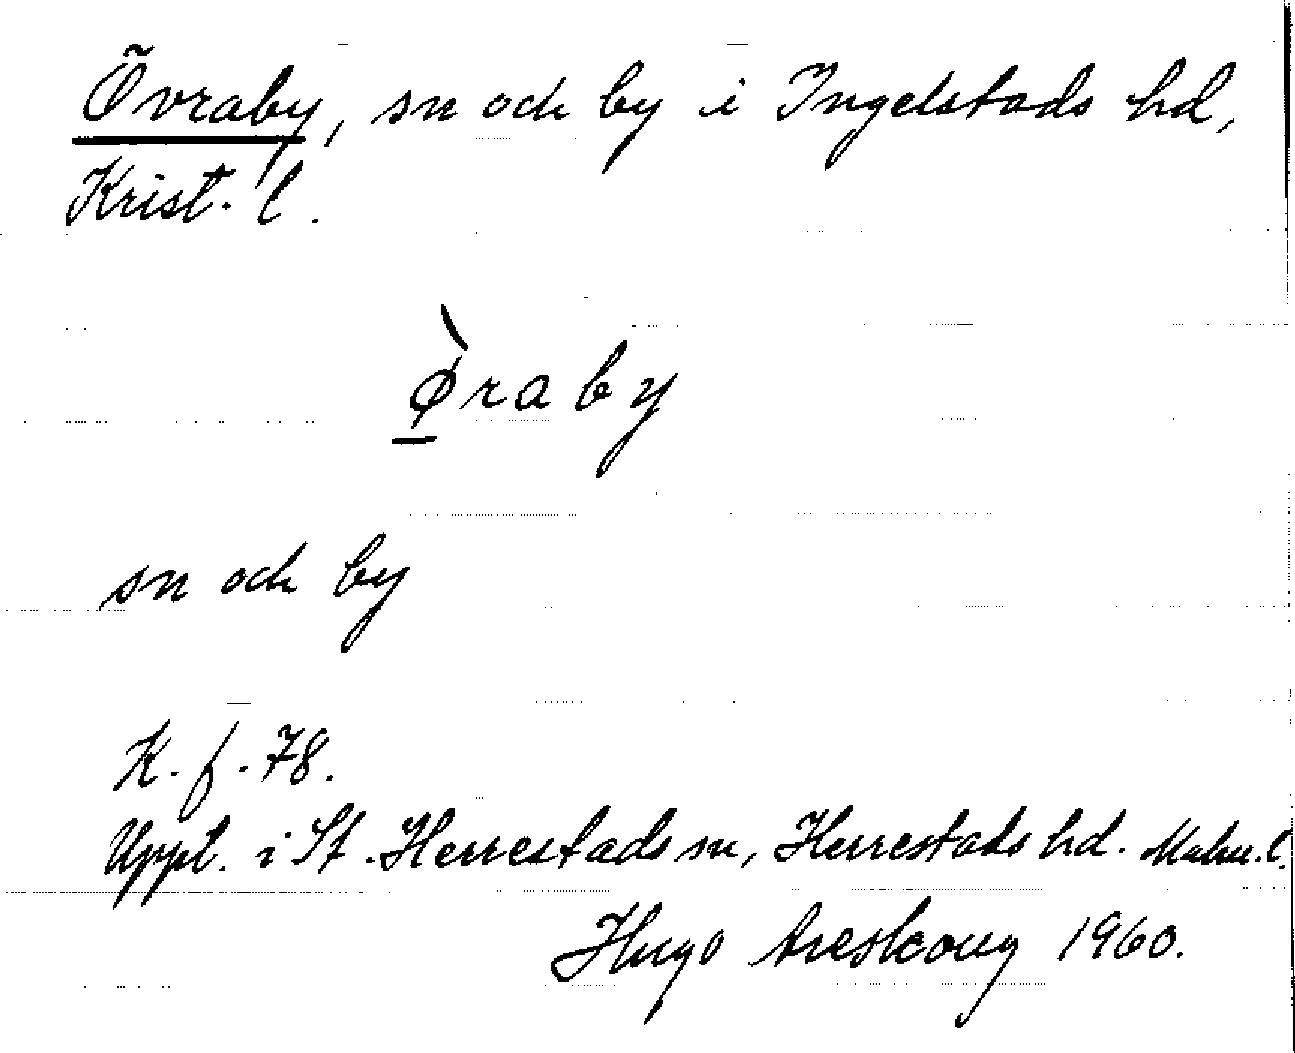 Övraby, sn och by i Ingelstads hd,
Krist. l.
ø̀raby
sn och by
K. f. 78.
Uppt. i St. Herrestads sn, Herrestads hd. Malm. l.
Hugo Areskoug 1960.